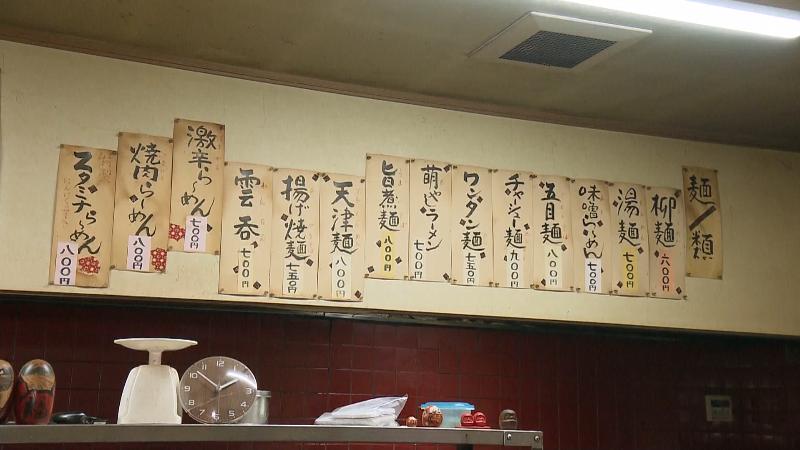 麺類
柳麺 六〇〇円
湯麺 七〇〇円
味噌らーめん 七〇〇円
五目麺 八〇〇円
チャーシュー麺 九〇〇円
ワンタン麺 七五〇円
萌やしラーメン 七〇〇円
旨煮麺 八〇〇円
天津麺 八〇〇円
揚げ焼麺 七五〇円
雲呑 七〇〇円
激辛らーめん 七〇〇円
焼肉らーめん 八〇〇円
スタミナらーめん 八〇〇円